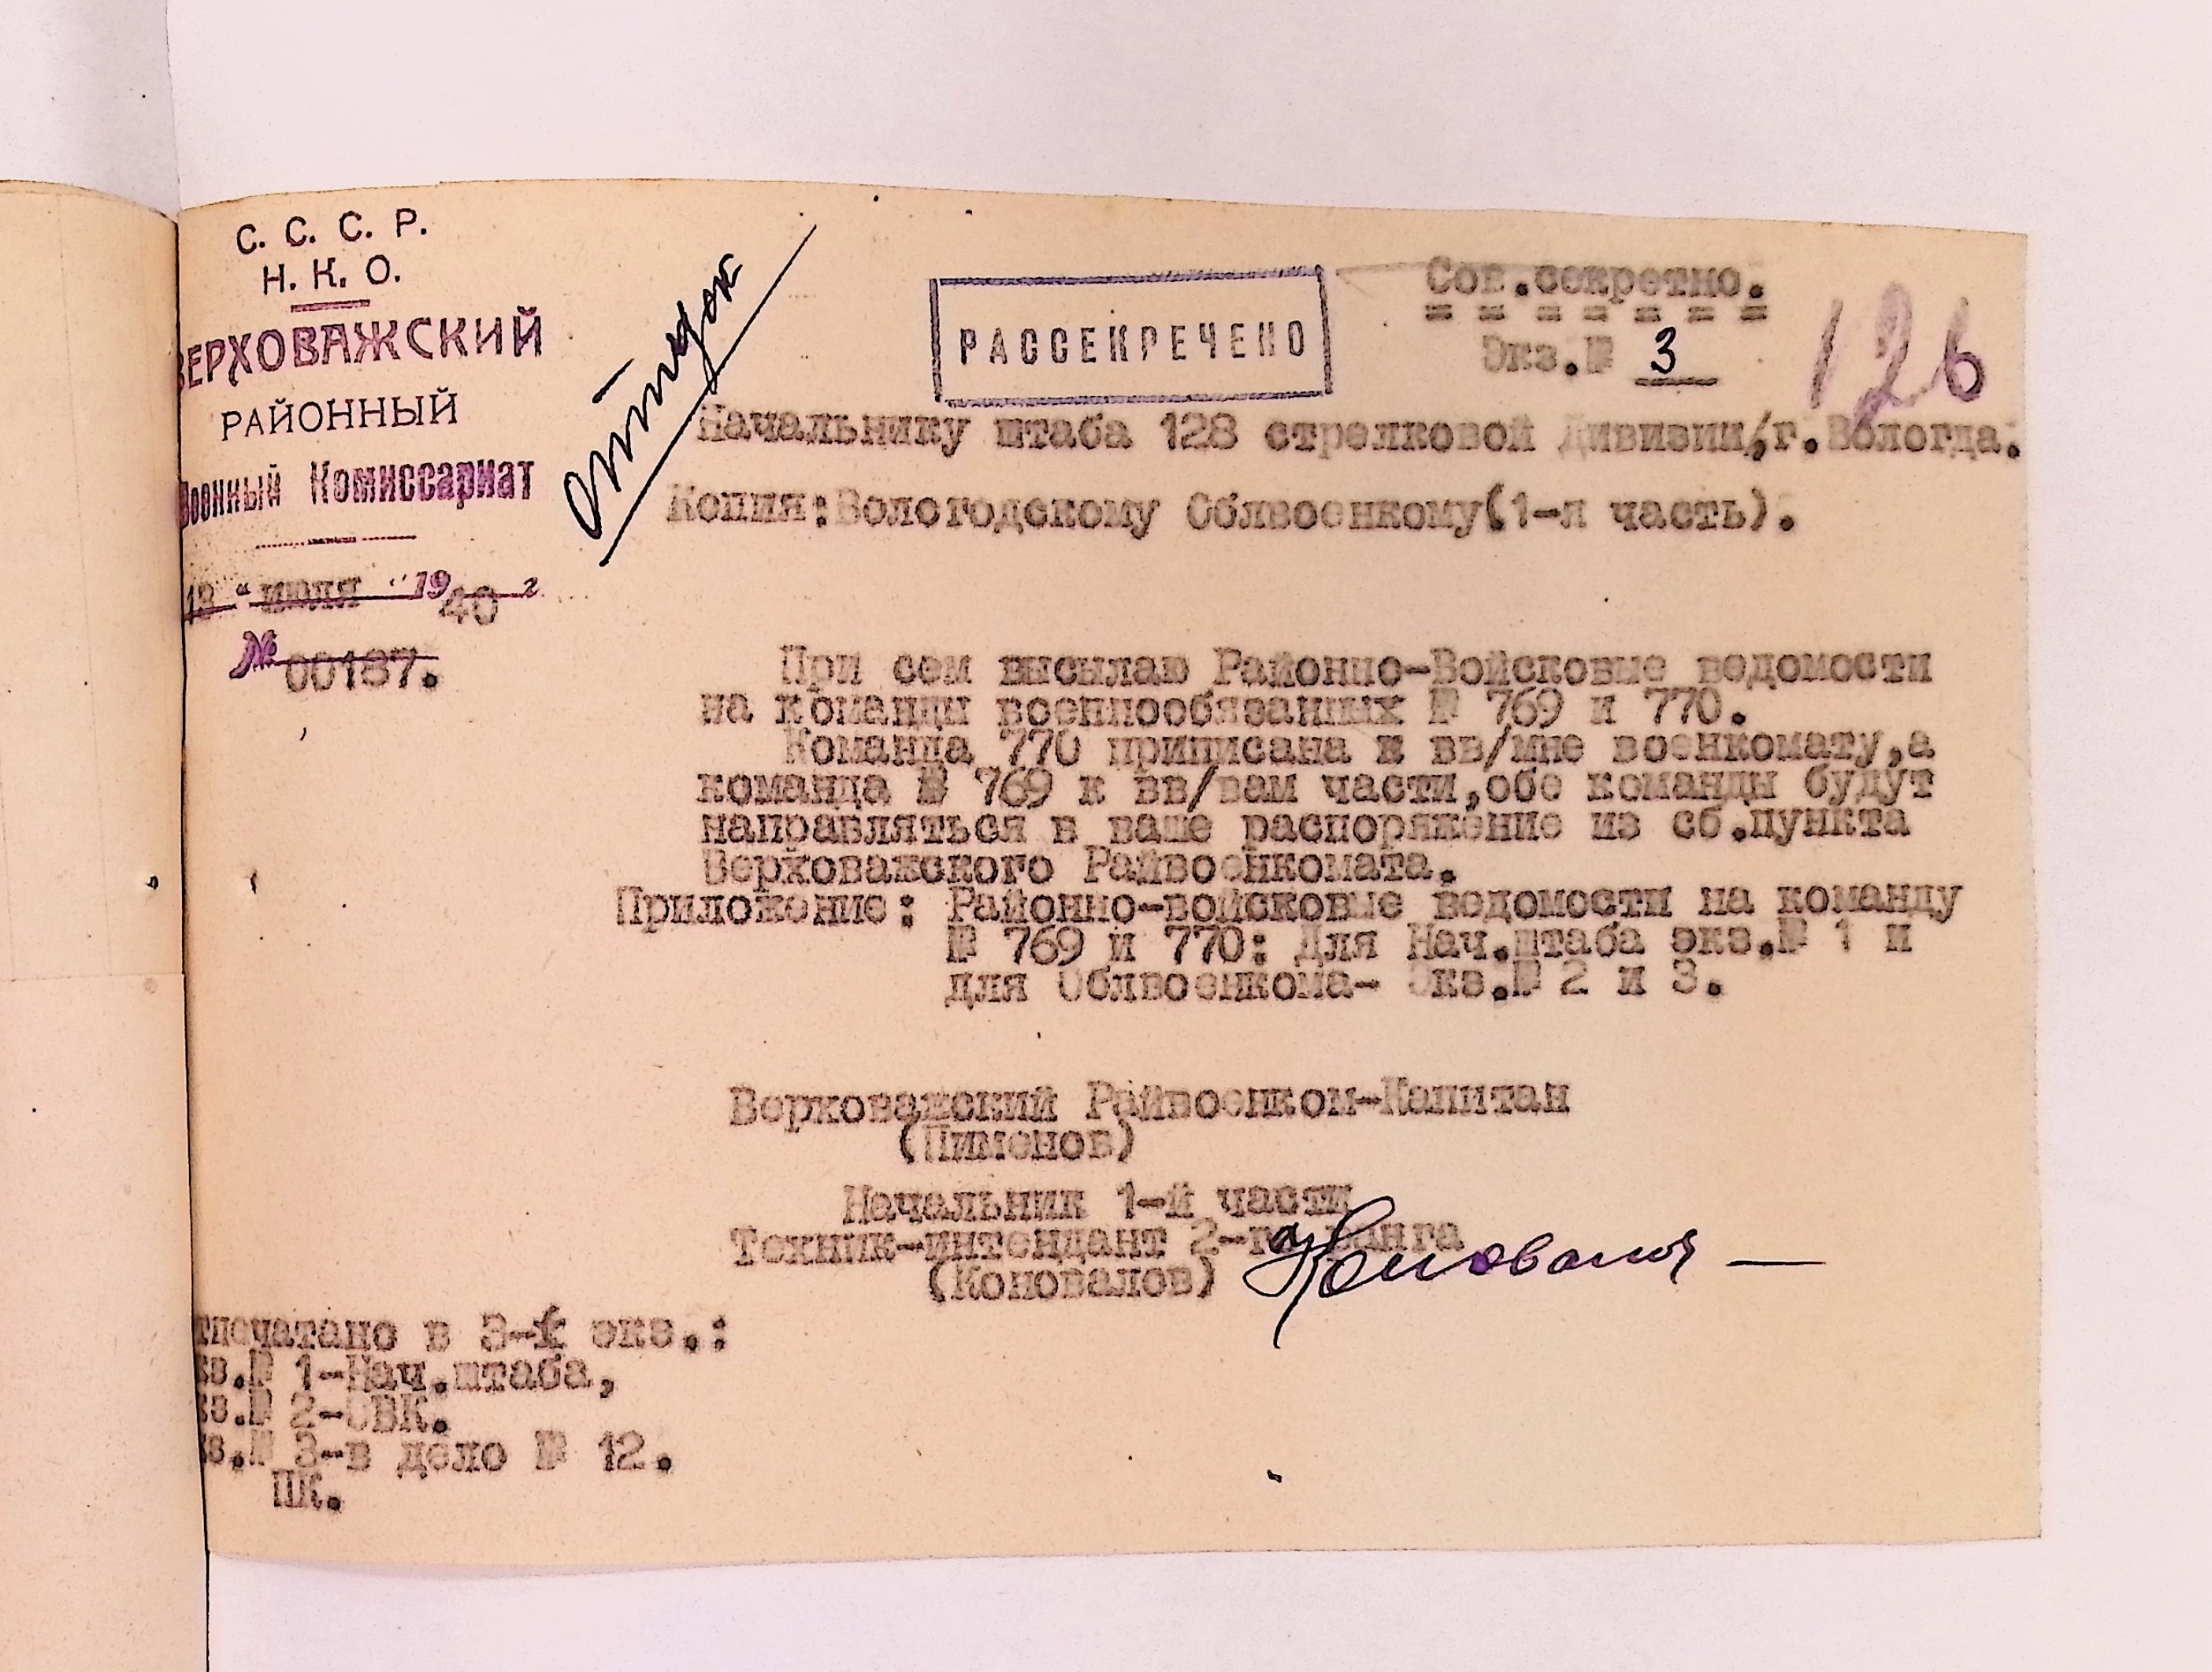 С. С. С. Р.
Н. К. О.
ВЕРХОВАЖСКИЙ
РАЙОННЫЙ
Военный Комиссариат
13 " июля " 1940 г
№ 00187.
отпуск
РАССЕКРЕЧЕНО
Сов.секретно.
Экз.№ 3
126
Начальнику штаба 128 стрелковой Дивизии,г.Вологда.
Копия:Вологодскому Облвоенкому(1-я часть).
При сем высылаю Районно-Войсковые ведомости
на команды военнообязанных № 769 и 770.
Команда 770 приписана к вв/мне военкомату,а
команда № 769 к вв/вам части,обе команды будут
направляться в ваше распоряжение из сб.пункта
Верховажского Райвоенкомата.
Приложение: Районно-войсковые ведомости на команду
№ 769 и 770: Для Нач.штаба экз.№ 1 и
для Облвоенкома- Экз.№ 2 и 3.
Верховажский Райвоенком-Капитан
(Пименов)
Начальник 1-й части
Техник-интендант 2-го ранга
(Коновалов) Коновалов
тпечатано в 3-х экз.:
кз.№ 1-Нач.штаба,
кз.№ 2-ОВК.
кз.№ 3-в дело № 12.
ПК.